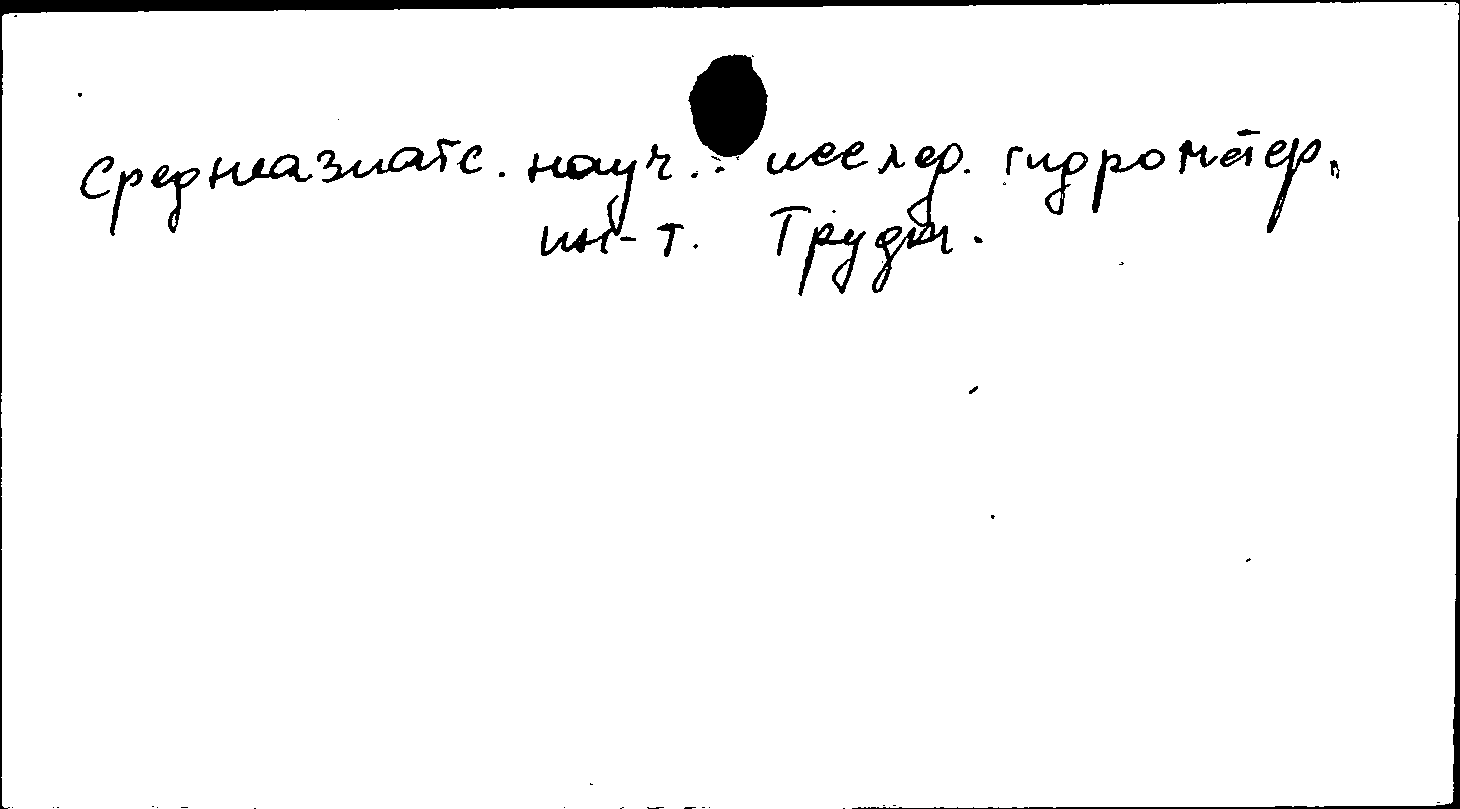 Среднеазиатс. науч.. исслед. гидрометер.
ин-т. Труды.